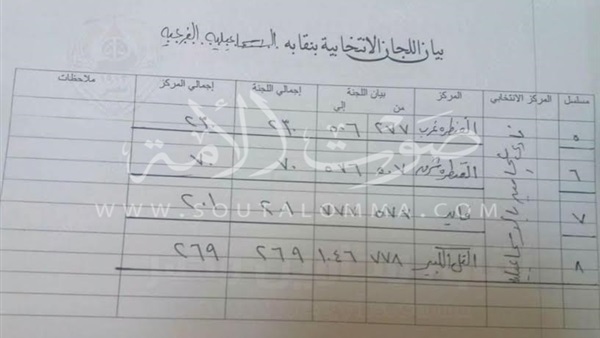 بيان اللجان الانتخابية بنقابه الاسماعيليه الفرعيه
مسلسل المركز الانتخابي المركز بيان اللجنة إجمالي اللجنة إجمالي المركز ملاحظات
من إلى
٥ القنطره غرب ٢٧٧ ٥٠٦ ٢٣٠ ٢٣٠
٦ القنطره شرق ٥٠٧ ٥٧٦ ٧٠ ٧٠
٧ فايد ٥٧٧ ٧٧٧ ٢٠١ ٢٠١
٨ التل الكبير ٧٧٨ ١٠٤٦ ٢٦٩ ٢٦٩
صوت الأمة
WWW.SOUTALOMMA.COM